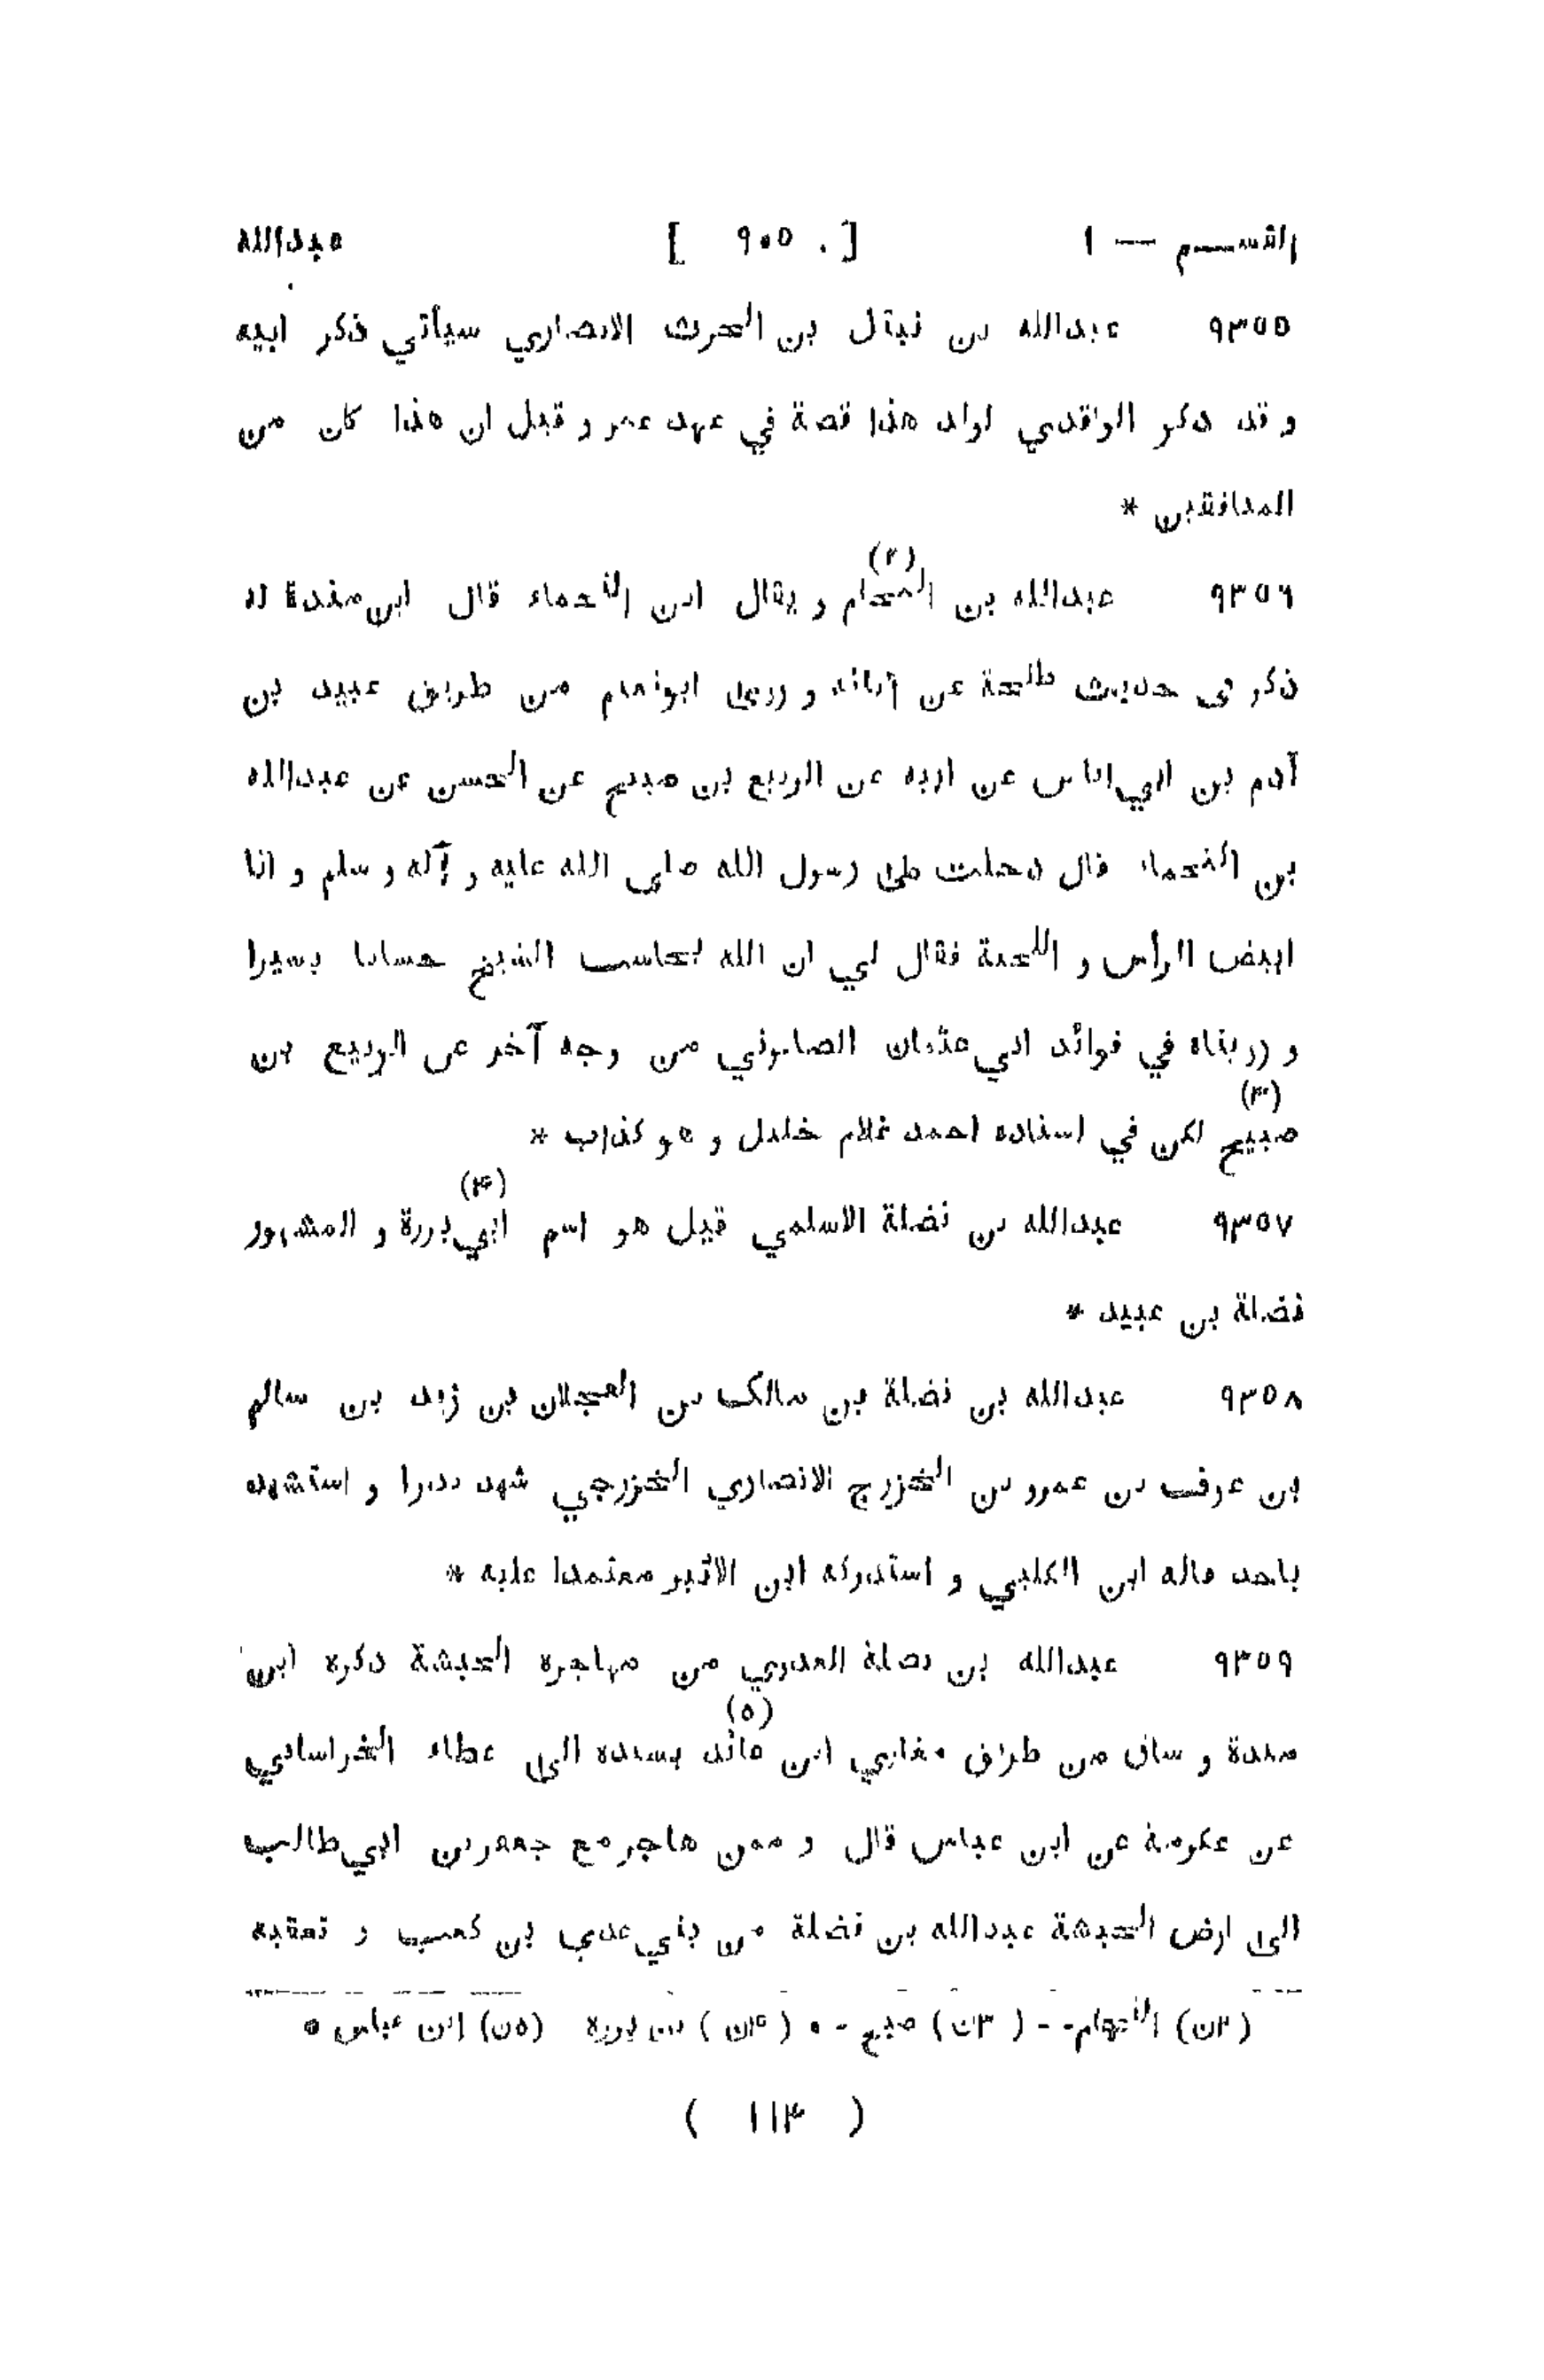 القســـم — ١ [ ٩٠٥ . ] عبدالله
٩٣٥٥ عبدالله بن نبتل بن الحرث الانصاري سيأتي ذكر ابيه
و قد ذكر الواقدي لولد هذا قصة في عهد عمر و قيل ان هذا كان من
المنافقين *
٩٣٥٦ عبدالله بن النحام (٢) و يقال ابن النحماء قال ابن مندة له
ذكر في حديث طلحة عن آبائه و روى ابونعيم من طريق عبيد بن
آدم بن ابي اياس عن ابيه عن الربيع بن صبيح عن الحسن عن عبدالله
بن النحماء قال دخلت على رسول الله صلى الله عليه و آله و سلم و انا
ابيض الرأس و اللحية فقال لي ان الله يحاسب الشيخ حسابا يسيرا
و رويناه في فوائد ابي عثمان الصابوني من وجه آخر عن الربيع بن
صبيح (٣) لكن في اسناده احمد غلام خليل و هو كذاب *
٩٣٥٧ عبدالله بن نضلة الاسلمي قيل هو اسم ابي برزة (۴) و المشهور
نضلة بن عبيد *
٩٣٥٨ عبدالله بن نضلة بن مالك بن العجلان بن زيد بن سالم
بن عوف بن عمرو بن الخزرج الانصاري الخزرجي شهد بدرا و استشهد
باحد قاله ابن الكلبي و استدركه ابن الاثير معتمدا عليه *
٩٣٥٩ عبدالله بن نضلة العدوي من مهاجرة الحبشة ذكره ابن
مندة و ساق من طريق مغازي ابن عائذ (٥) بسنده الى عطاء الخراساني
عن عكرمة عن ابن عباس قال و ممن هاجر مع جعفر بن ابي طالب
الى ارض الحبشة عبدالله بن نضلة من بني عدي بن كعب و تعقبه
(٢ن) - - (٣ن) صبح - • (۴ن) بن برزه (٥ن) ابن عباس •
( ١١٣ )